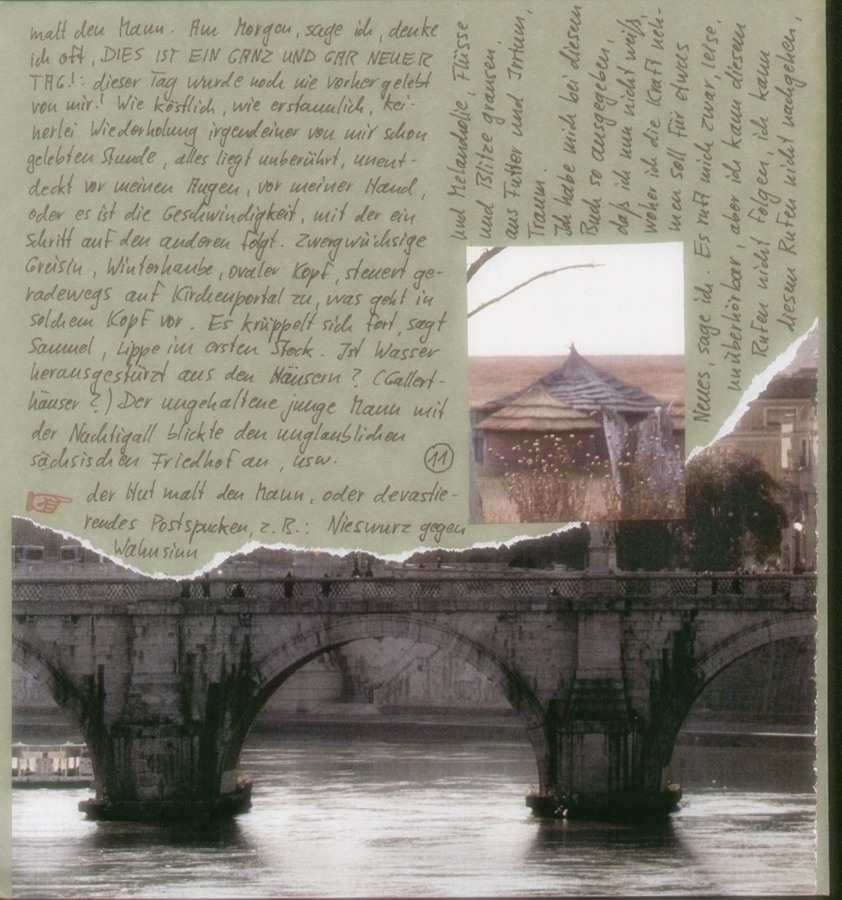 malt den Mann. Am Morgen, sage ich, denke
ich oft, DIES IST EIN GANZ UND GAR NEUER
TAG!: dieser Tag wurde noch nie vorher gelebt
von mir! Wie köstlich, wie erstaunlich, kei-
nerlei Wiederholung irgendeiner von mir schon
gelebten Stunde, alles liegt unberührt, unent-
deckt vor meinen Augen, vor meiner Hand,
oder es ist die Geschwindigkeit, mit der ein
Schritt auf den anderen folgt. Zwergwüchsige
Greisin, Winterhaube, ovaler Kopf, steuert ge-
radewegs auf Kirchenportal zu, was geht in
solchem Kopf vor. Es krüppelt sich fort, sagt
Samuel, Lippe im ersten Stock. Ist Wasser
herausgestürzt aus den Häusern? (Gallert-
häuser?) Der ungehaltene junge Mann mit
der Nachtigall blickte den unglaublichen
sächsischen Friedhof an, usw.
11
der Hut malt den Mann, oder devastie-
rendes Postspucken, z.B.: Nieswurz gegen
Wahnsinn
und Melancholie, Flüsse
und Blitze grausen,
aus Futter und Irrtum,
Traum.
Ich habe mich bei diesem
Buch so ausgegeben,
daß ich nun nicht weiß,
woher ich die Kraft neh-
men soll für etwas
Neues, sage ich. Es ruft mich zwar, leise,
unüberhörbar, aber ich kann diesem
Rufen nicht folgen, ich kann
diesem Rufen nicht nachgehen,